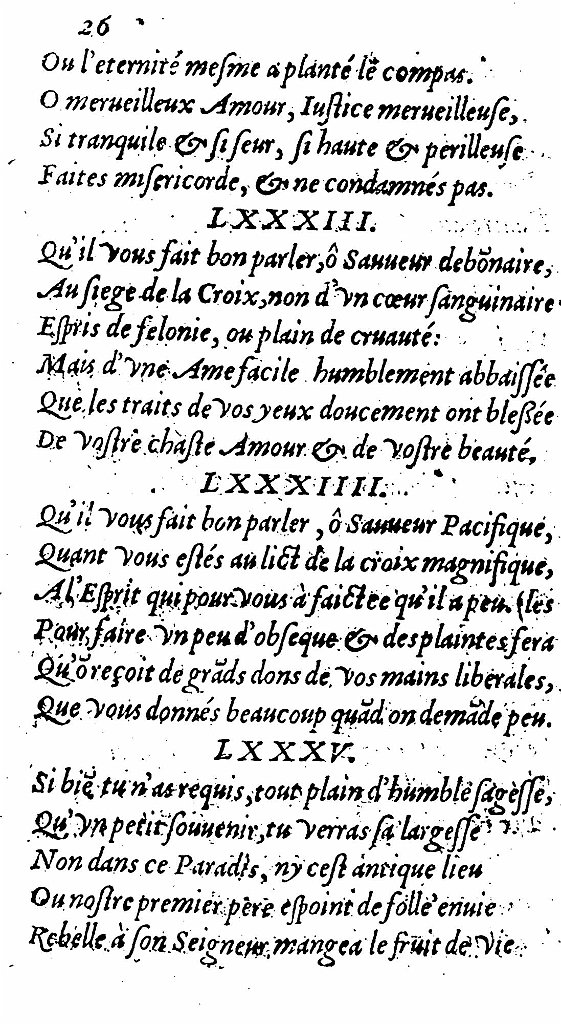 26
Ou l'eternité mesme a planté le compas.
O merueilleux Amour, Iustice merueilleuse,
Si tranquile & si seur, si haute & perilleuse
Faites misericorde, & ne condamnés pas.
LXXXIII.
Qu'il vous fait bon parler, ô Sauueur debõnaire,
Au siege de la Croix, non d'vn cœur sanguinaire
Espris de felonie, ou plain de cruauté:
Mais d'vne Ame facile humblement abbaissée
Que les traits de vos yeux doucement ont blessée
De vostre chaste Amour & de vostre beauté,
LXXXIIII.
Qu'il vous fait bon parler, ô Sauueur Pacifique,
Quant vous estés au lict de la croix magnifique,
A l'Esprit qui pour vous à faictee qu'il a peu. (les
Pour faire vn peu d'obseque & des plaintes fera
Qu'õ reçoit de grãds dons de vos mains liberales,
Que vous donnés beaucoup quãd on demãde peu.
LXXXV.
Si biẽ tu n'as requis, tout plain d'humble sagesse,
Qu'vn petit souuenir, tu verras sa largesse
Non dans ce Paradis, ny cest antique lieu
Ou nostre premier pere espoint de folle enuie
Rebelle à son Seigneur mangea le fruit de vie